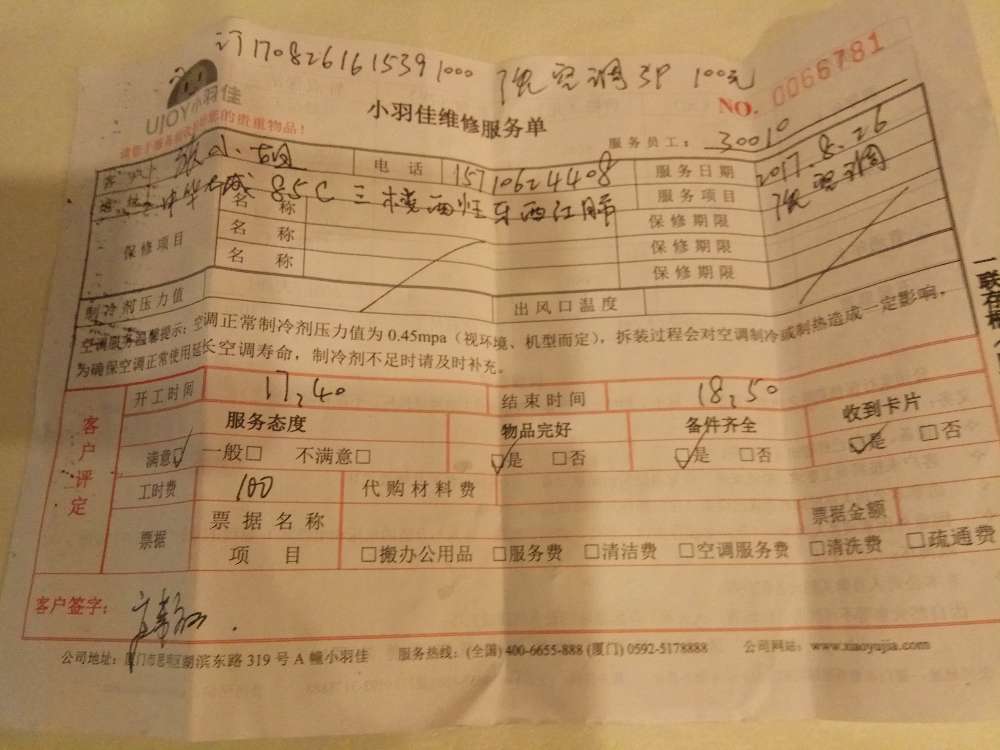 订170826161539 1000 洗空调3P 100元
UJOY小羽佳
NO. 0066781
小羽佳维修服务单
的贵重物品！
服务员工： 30010
电话 15710624408 服务日期 2017.8.26
85C三楼 服务项目 洗空调
保修项目 名称 保修期限
名称 保修期限
名称 保修期限
制冷剂压力值 出风口温度
空调服务温馨提示：空调正常制冷剂压力值为 0.45mpa（视环境、机型而定），拆装过程会对空调制冷或制热造成一定影响，
为确保空调正常使用延长空调寿命，制冷剂不足时请及时补充。
客户评定
开工时间 17:40 结束时间 18:50
服务态度 物品完好 备件齐全 收到卡片
满意☑ 一般□ 不满意□ ☑是 □否 ☑是 □否 ☑是 □否
工时费 100 代购材料费
票据 票据名称 票据金额
项目 □搬办公用品 □服务费 □清洁费 □空调服务费 □清洗费 □疏通费
客户签字：
公司地址：厦门市思明区湖滨东路 319 号 A 幢小羽佳 服务热线：(全国) 400-6655-888 (厦门) 0592-5178888 公司网站：www.xiaoyujia.com